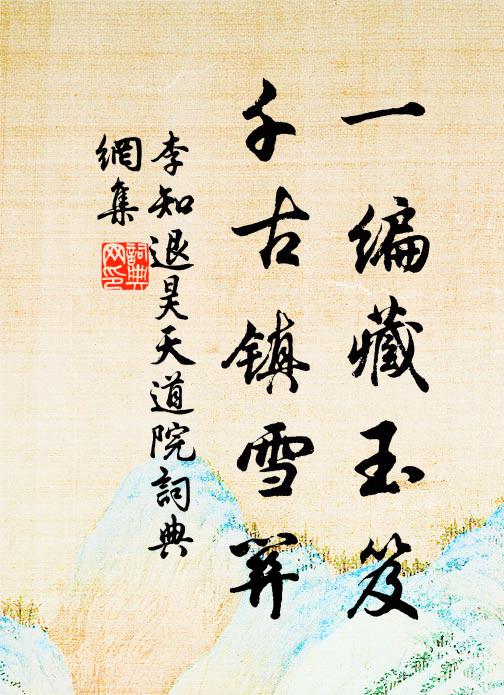 一编藏玉笈
千古镇雪
李知退昊天道院詞典
網集
詞典
网印